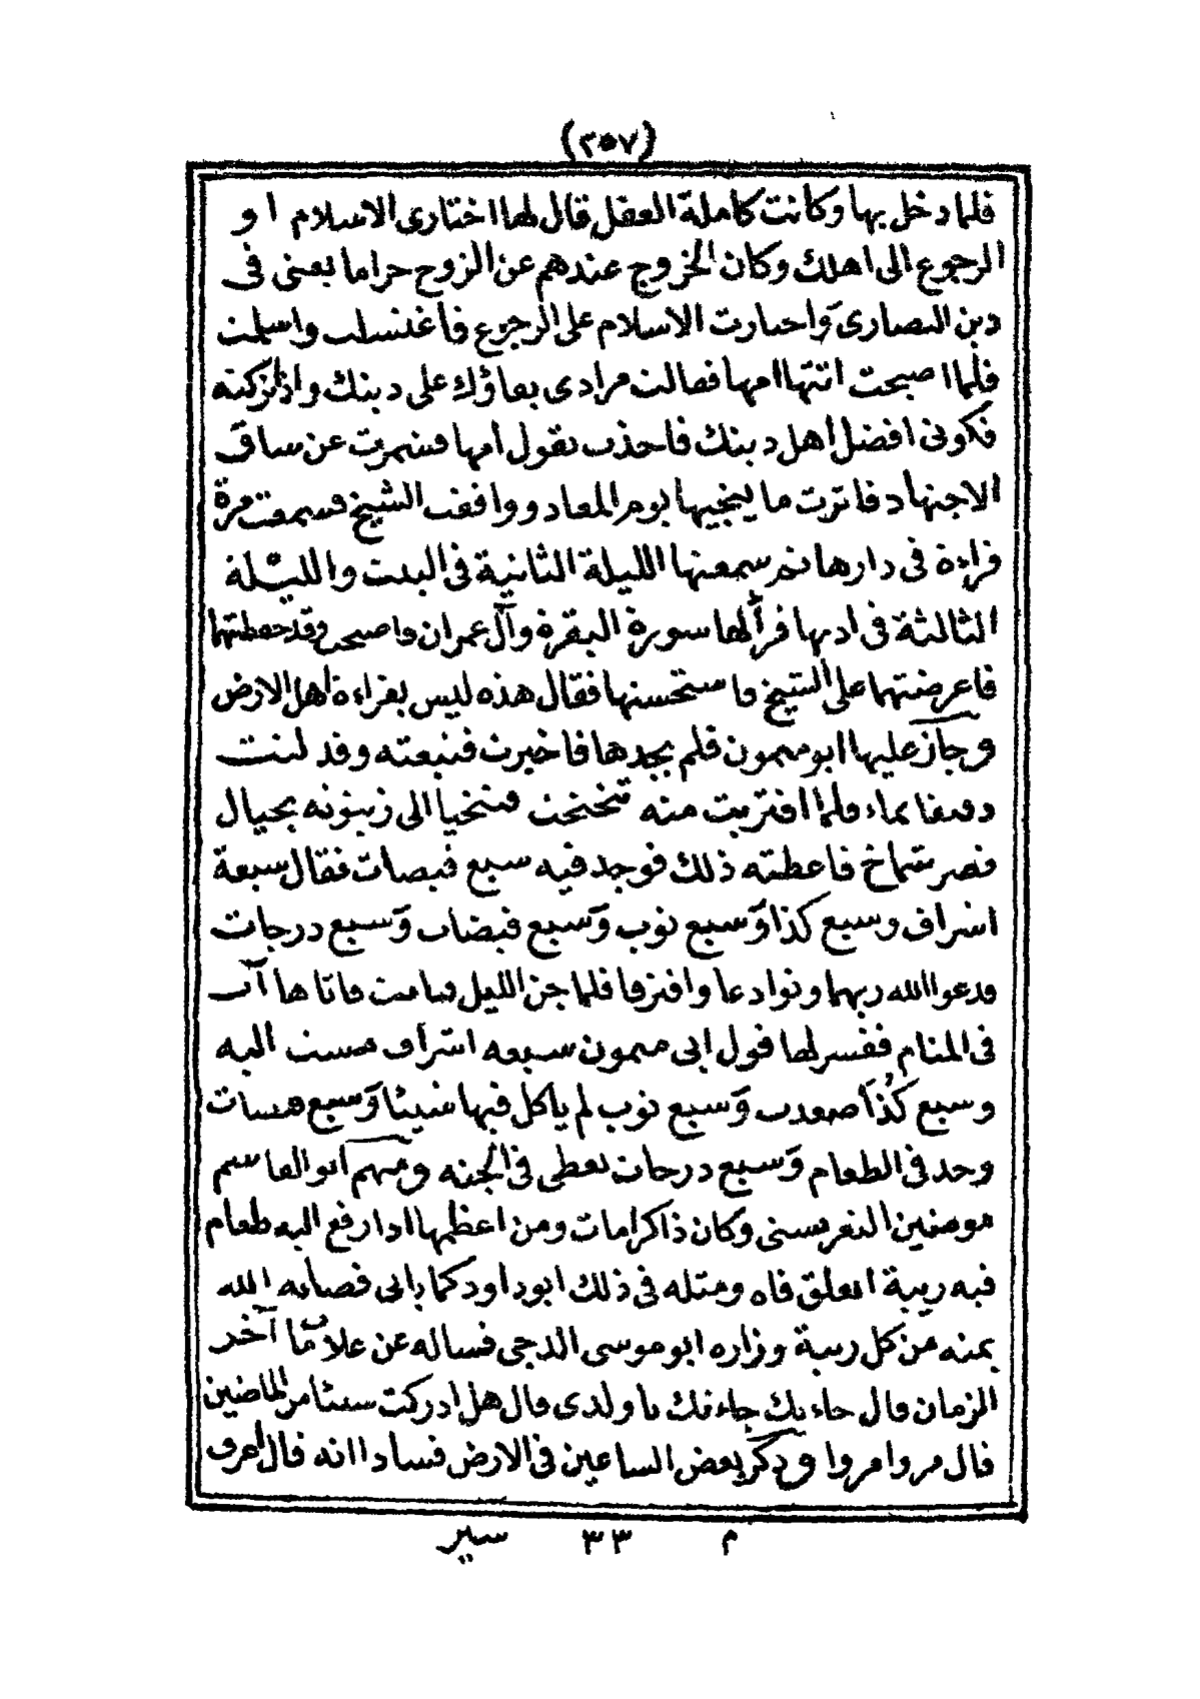 (٢٥٧)
فلما دخل بها وكانت كاملة العقل قال لها اختارى الاسلام او
الرجوع الى اهلك وكان الخروج عندهم عن الزوج حراما يعنى فى
دين النصارى واختارت الاسلام على الرجوع فاغتسلت واسلمت
فلما اصبحت اتتها امها فقالت مرادى بقاؤك على دينك واذ تركته
فكونى افضل اهل دينك فاخذت بقول امها فشمرت عن ساق
الاجتهاد فاترت ما ينجيها يوم المعاد ووافقت الشيخ فسمعت مرة
قراءة فى دارها ثم سمعتها الليلة الثانية فى البيت والليلة
الثالثة فى اذنها فقرأ لها سورة البقرة وآل عمران فاصبحت وقد حفظتهما
فاعرضتهما على الشيخ فاستحسنها فقال هذه ليس بقراءة اهل الارض
وجاز عليها ابو ميمون فلم يجدها فاخبرت فتبعته وقد لتت
دقيقا بماء فلما اقتربت منه تنحنحت فتنحيا الى زيتونه بحيال
قصر شماخ فاعطته ذلك فوجد فيه سبع قبصات فقال سبعة
اشراف وسبع كذا وسبع نوب وسبع قبضات وسبع درجات
فدعوا الله ربهما وتوادعا وافترقا فلما جن الليل فنامت فاتاها آت
فى المنام ففسر لها قول ابى ميمون سبعه اشراف مست اليه
وسبع كذا صعدت وسبع نوب لم ياكل فيها شيئا وسبع قبسات
وجد فى الطعام وسبع درجات تعطى فى الجنه ومنهم ابو القاسم
مومنين النغرسنى وكان ذا كرامات ومن اعظمها اذا رفع اليه طعام
فيه ريبة انغلق فاه ومثله فى ذلك ابو داود كما ياتى فصانه الله
بمنه من كل ريبة وزاره ابو موسى الدجى فساله عن علامات آخر
الزمان قال جاءتك جاءتك يا ولدى قال هل ادركت شيئا من الماضين
قال مروا مروا وذكر بعض الساعين فى الارض فسادا انه قال اعرف
م ٣٣ سير